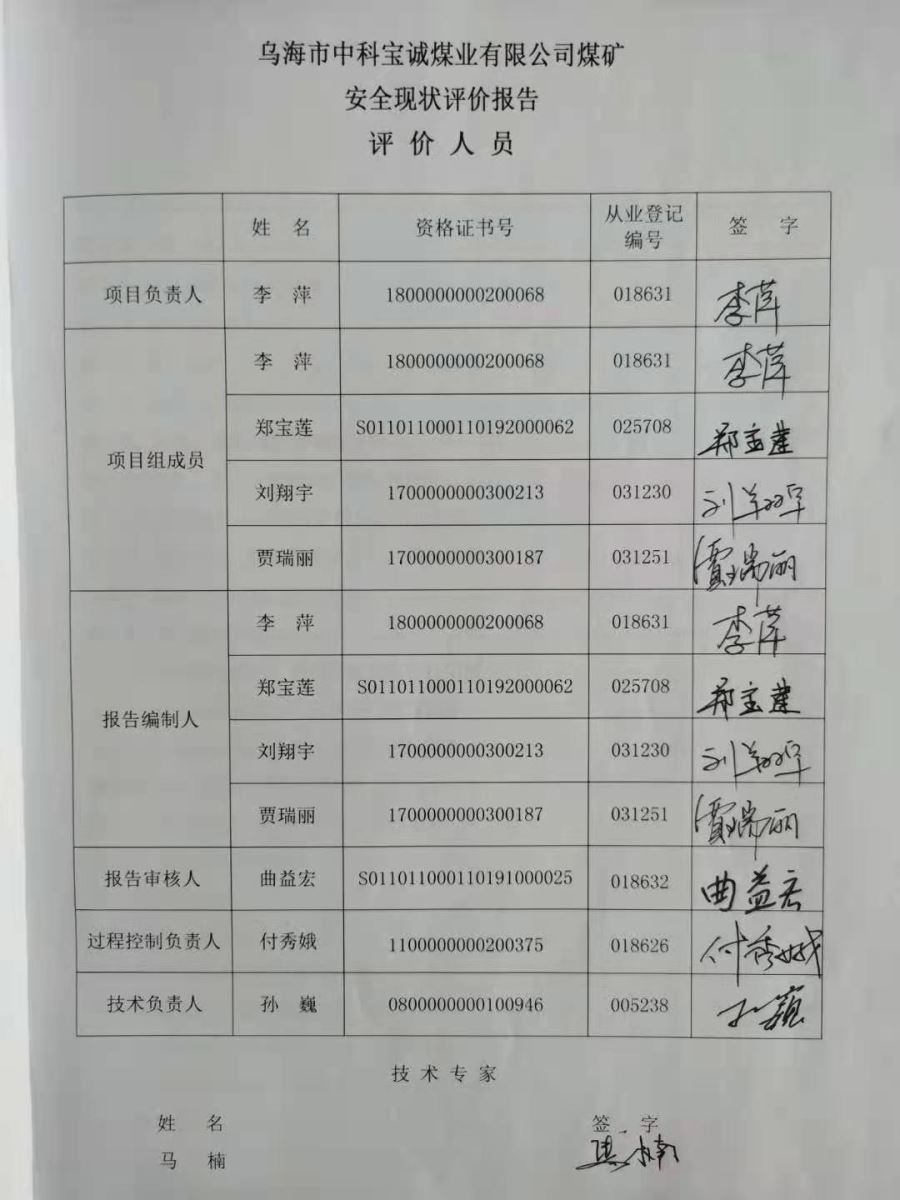 乌海市中科宝诚煤业有限公司煤矿
安全现状评价报告
评价人员
姓 名 资格证书号 从业登记编号 签 字
项目负责人 李 萍 1800000000200068 018631 李萍
项目组成员 李 萍 1800000000200068 018631 李萍
郑宝莲 S011011000110192000062 025708 郑宝莲
刘翔宇 1700000000300213 031230 刘翔宇
贾瑞丽 1700000000300187 031251 贾瑞丽
报告编制人 李 萍 1800000000200068 018631 李萍
郑宝莲 S011011000110192000062 025708 郑宝莲
刘翔宇 1700000000300213 031230 刘翔宇
贾瑞丽 1700000000300187 031251 贾瑞丽
报告审核人 曲益宏 S011011000110191000025 018632 曲益宏
过程控制负责人 付秀娥 1100000000200375 018626 付秀娥
技术负责人 孙 巍 0800000000100946 005238 孙巍
技术专家
姓 名 签 字
马 楠 马楠